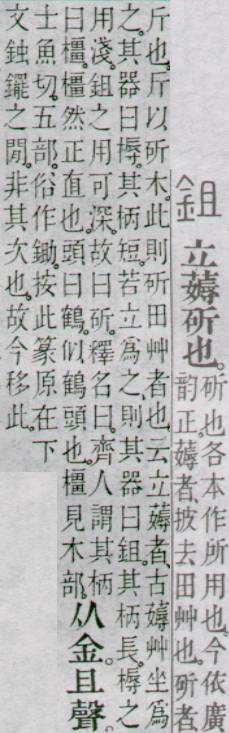 鉏 立薅斫也。
斫也各本作所用也。今依廣
韵正。薅者。披去田艸也。斫者
斤也。斤以斫木。此則斫田艸者也。云立薅者。古薅艸坐爲
之。其器曰槈。其柄短。若立爲之。則其器曰鉏。其柄長。槈之
用淺。鉏之用可深。故曰斫。釋名曰。齊人謂其柄
曰橿。橿然正直也。頭曰鶴。似鶴頭也。橿見木部。
从金且聲。
士魚切。五部。俗作鋤。按此篆原在下
文鉵䥯之閒。非其次也。故今移此。